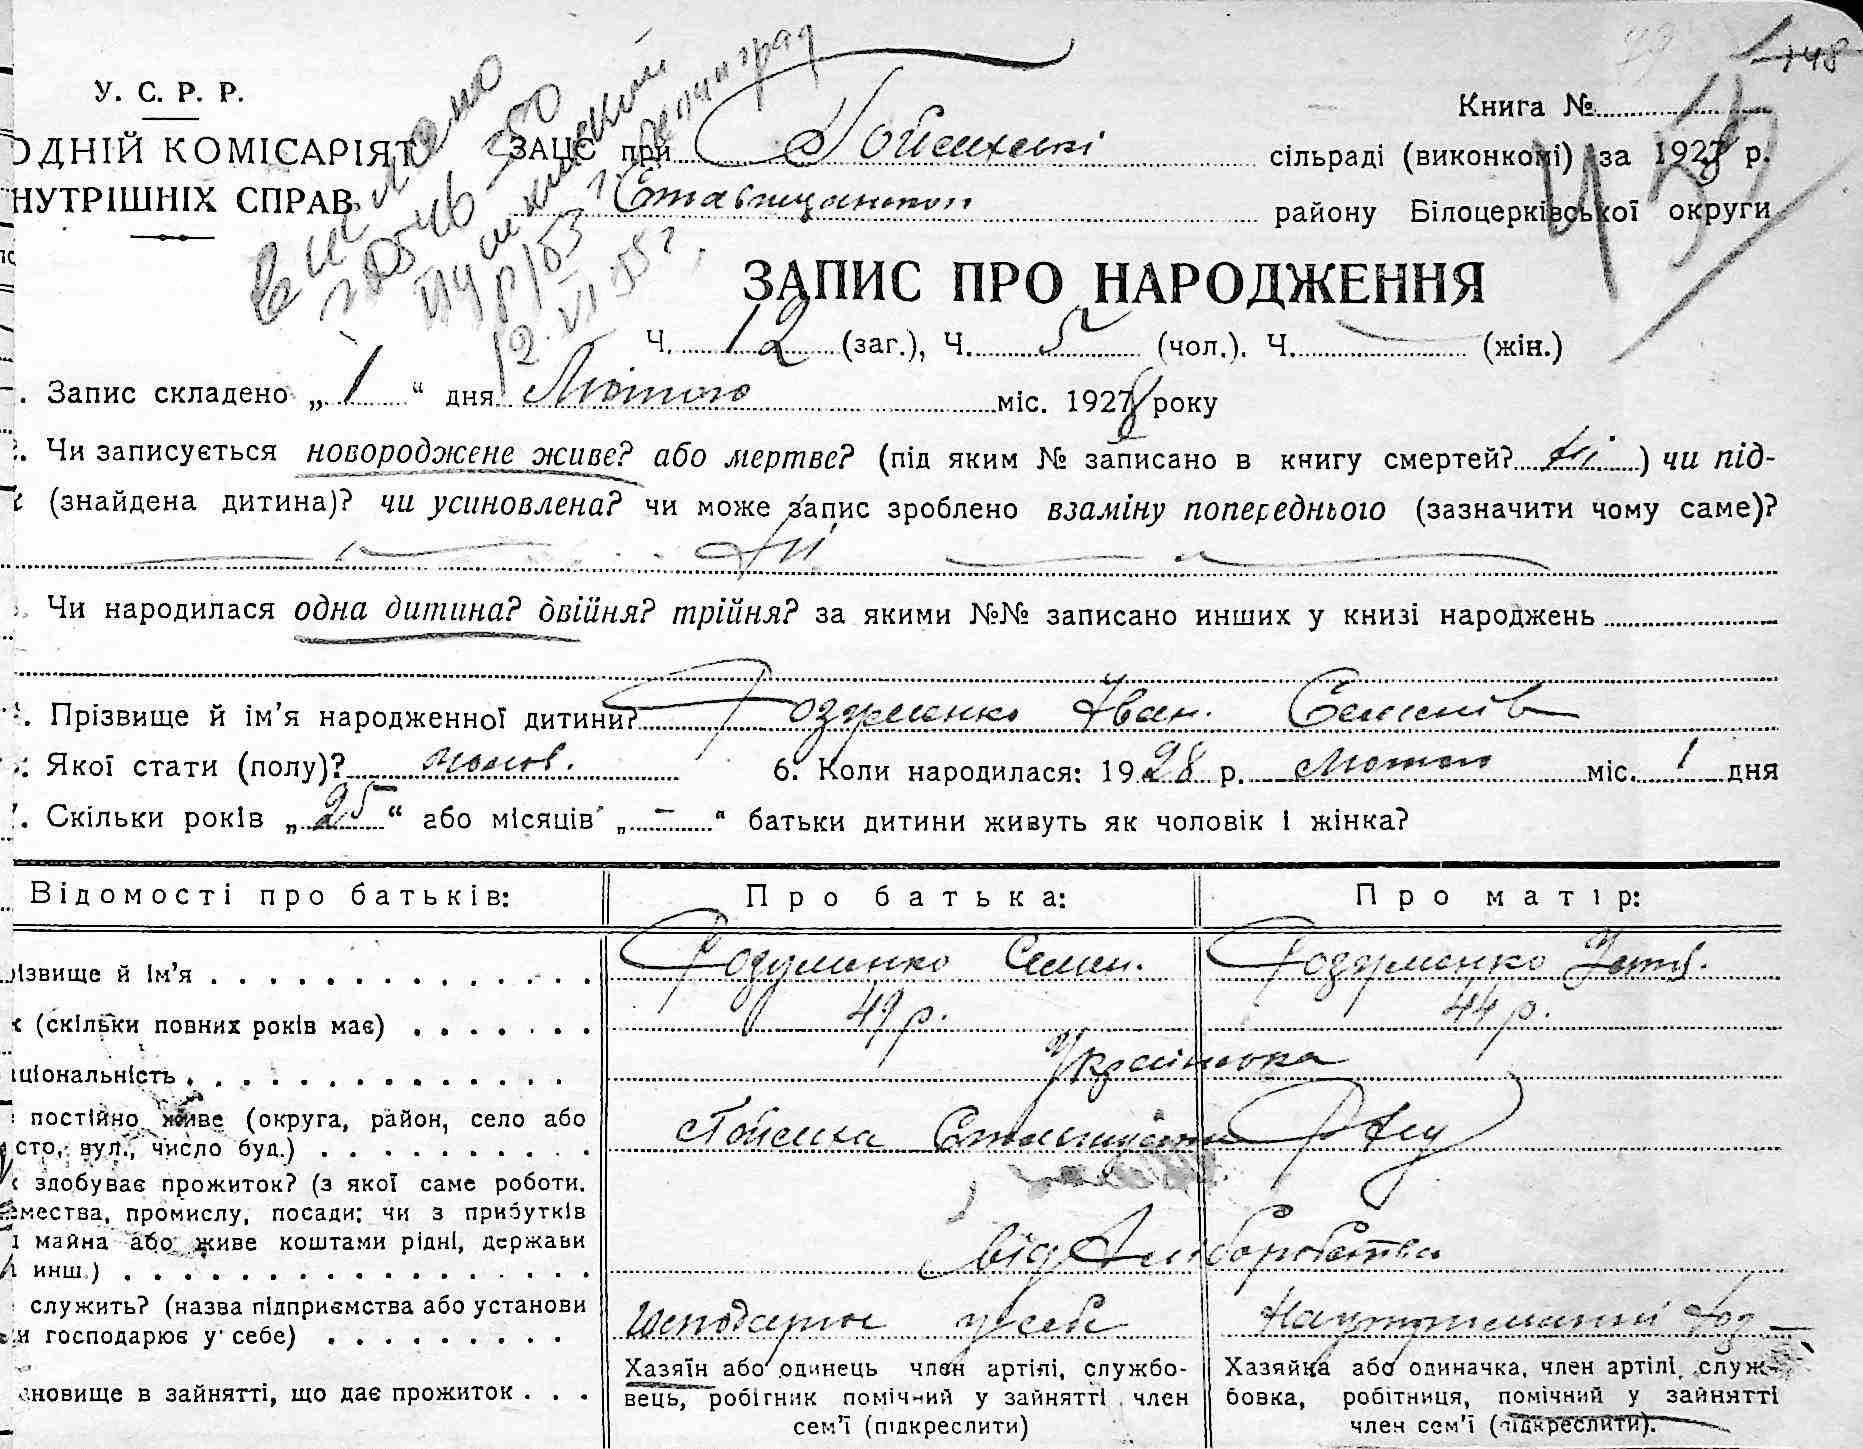 148
У. С. Р. Р.
ОДНІЙ КОМІСАРІЯТ
НУТРІШНІХ СПРАВ
Книга №
ЗАЦС при сільраді (виконкомі) за 1928 р.
району Білоцерківської округи
12.VI 55 г.
ЗАПИС ПРО НАРОДЖЕННЯ
Ч. 12 (заг.), Ч. 5 (чол.). Ч. — (жін.)
. Запис складено „ 1 “ дня Лютого міс. 1928 року
. Чи записується новороджене живе? або мертве? (під яким № записано в книгу смертей? Ні ) чи під-
(знайдена дитина)? чи усиновлена? чи може запис зроблено взаміну попереднього (зазначити чому саме)?
Ні
. Чи народилася одна дитина? двійня? трійня? за якими №№ записано инших у книзі народжень
. Прізвище й ім’я народженної дитини? Розуменко Іван. Семенів
. Якої стати (полу)? чолов. 6. Коли народилася: 1928 р. Лютого міс. 1 дня
. Скільки років „ 25 “ або місяців „ — “ батьки дитини живуть як чоловік і жінка?
Відомості про батьків: Про батька: Про матір:
різвище й ім’я Розуменко Семен. Розуменко
(скільки повних років має) 49 р. 44 р.
ціональність Українська
постійно живе (округа, район, село або
сто, вул., число буд.)
здобуває прожиток? (з якої саме роботи,
мества, промислу, посади; чи з прибутків
майна або живе коштами рідні, держави
инш.) від Хліборобства
служить? (назва підприємства або установи
и господарює у себе) Господарює у себе На утриманні
новище в зайнятті, що дає прожиток
Хазяїн або одинець член артілі, службо-
вець, робігник помічний у зайнятті член
сем’ї (підкреслити)
Хазяйка або одиначка, член артілі, служ-
бовка, робітниця, помічний у зайнятті
член сем’ї (підкреслити).